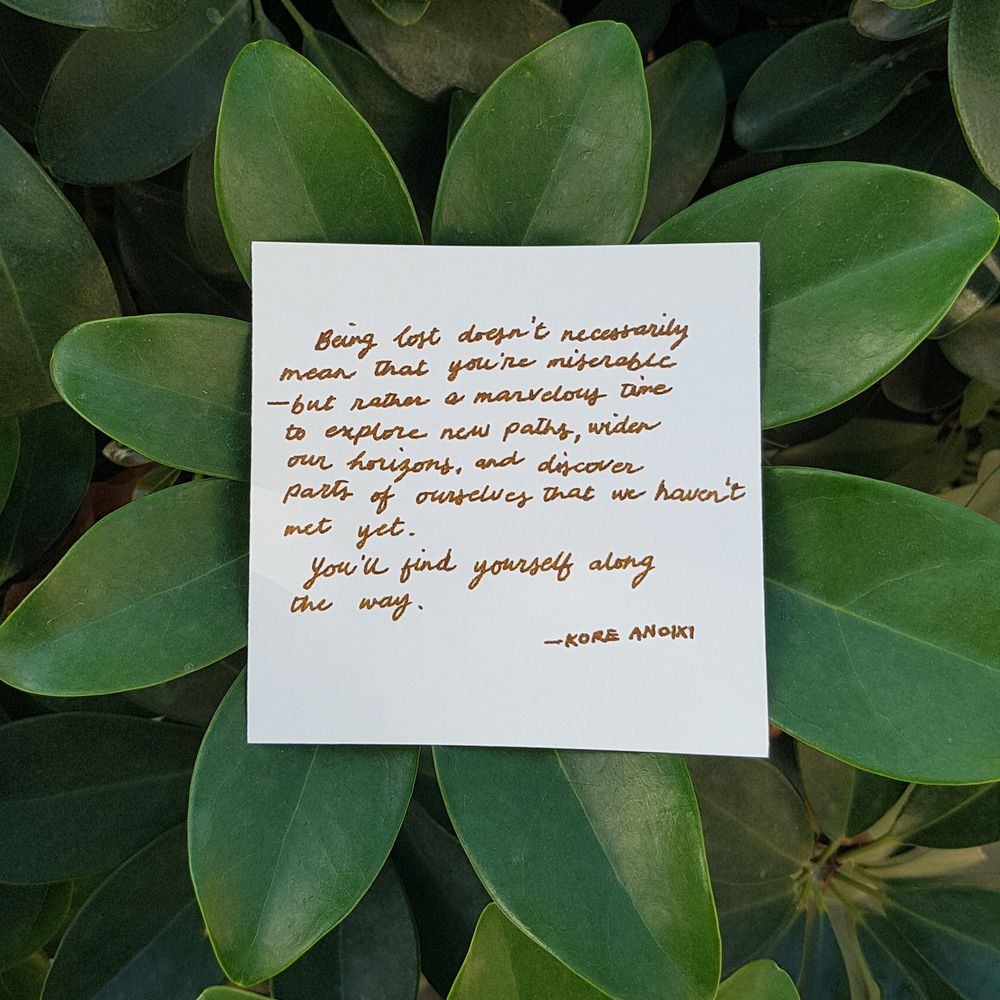 Being lost doesn't necessarily
mean that you're miserable
—but rather a marvelous time
to explore new paths, widen
our horizons, and discover
parts of ourselves that we haven't
met yet.
You'll find yourself along
the way.
—KORE ANOIXI